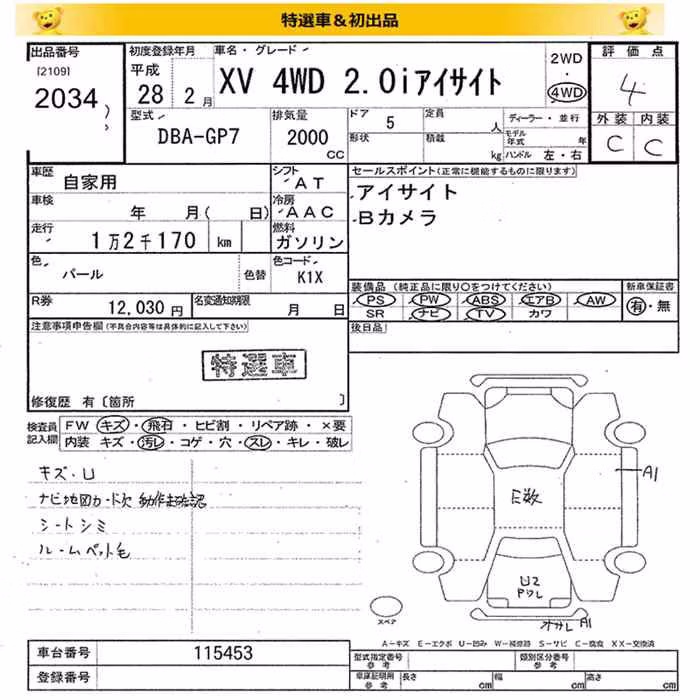 特選車＆初出品
出品番号 初度登録年月 車名・グレード 2WD・4WD 評価点
[2109] 2034 平成 28 2月 XV 4WD 2.0iアイサイト 4
型式 排気量 ドア 5 定員 人 ディーラー・並行 外装 内装
DBA-GP7 2000 CC 形状 積載 kg モデル年式 年 ハンドル 左・右 C C
車歴 自家用 シフト AT セールスポイント(正常に機能するものに限ります)
車検 年 月( 日) 冷房 AAC アイサイト
走行 1万2千170 km 燃料 ガソリン Bカメラ
色 パール 色替 色コード K1X
装備品 (純正品に限り○をつけてください) 新車保証書
PS PW ABS エアB AW 有・無
SR ナビ TV カワ
R券 12,030円 名変通知期限 月 日
後日品
注意事項申告欄(不具合内容等は具体的に記入して下さい)
特選車
修復歴 有〔箇所 〕
検査員記入欄 FW キズ・飛石・ヒビ割・リペア跡・×要
内装 キズ・汚レ・コゲ・穴・スレ・キレ・破レ
キズ・U
ナビ地図カード欠 動作未確認
シートシミ
ルームペット毛
A1
E数
U2
スペア
A1
A－キズ E－エクボ U－凹み W－補修跡 S－サビ C－腐食 XX－交換済
車台番号 115453
登録番号
型式指定番号 参考 類別区分番号 参考
車庫証明用 参考 長さ cm 幅 cm 高さ cm